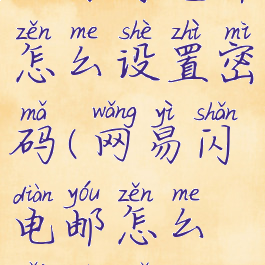 zěn me shè zhì mì
怎么设置密
mǎ wǎng yì shǎn
码(网易闪
diàn yóu zěn me
电邮怎么